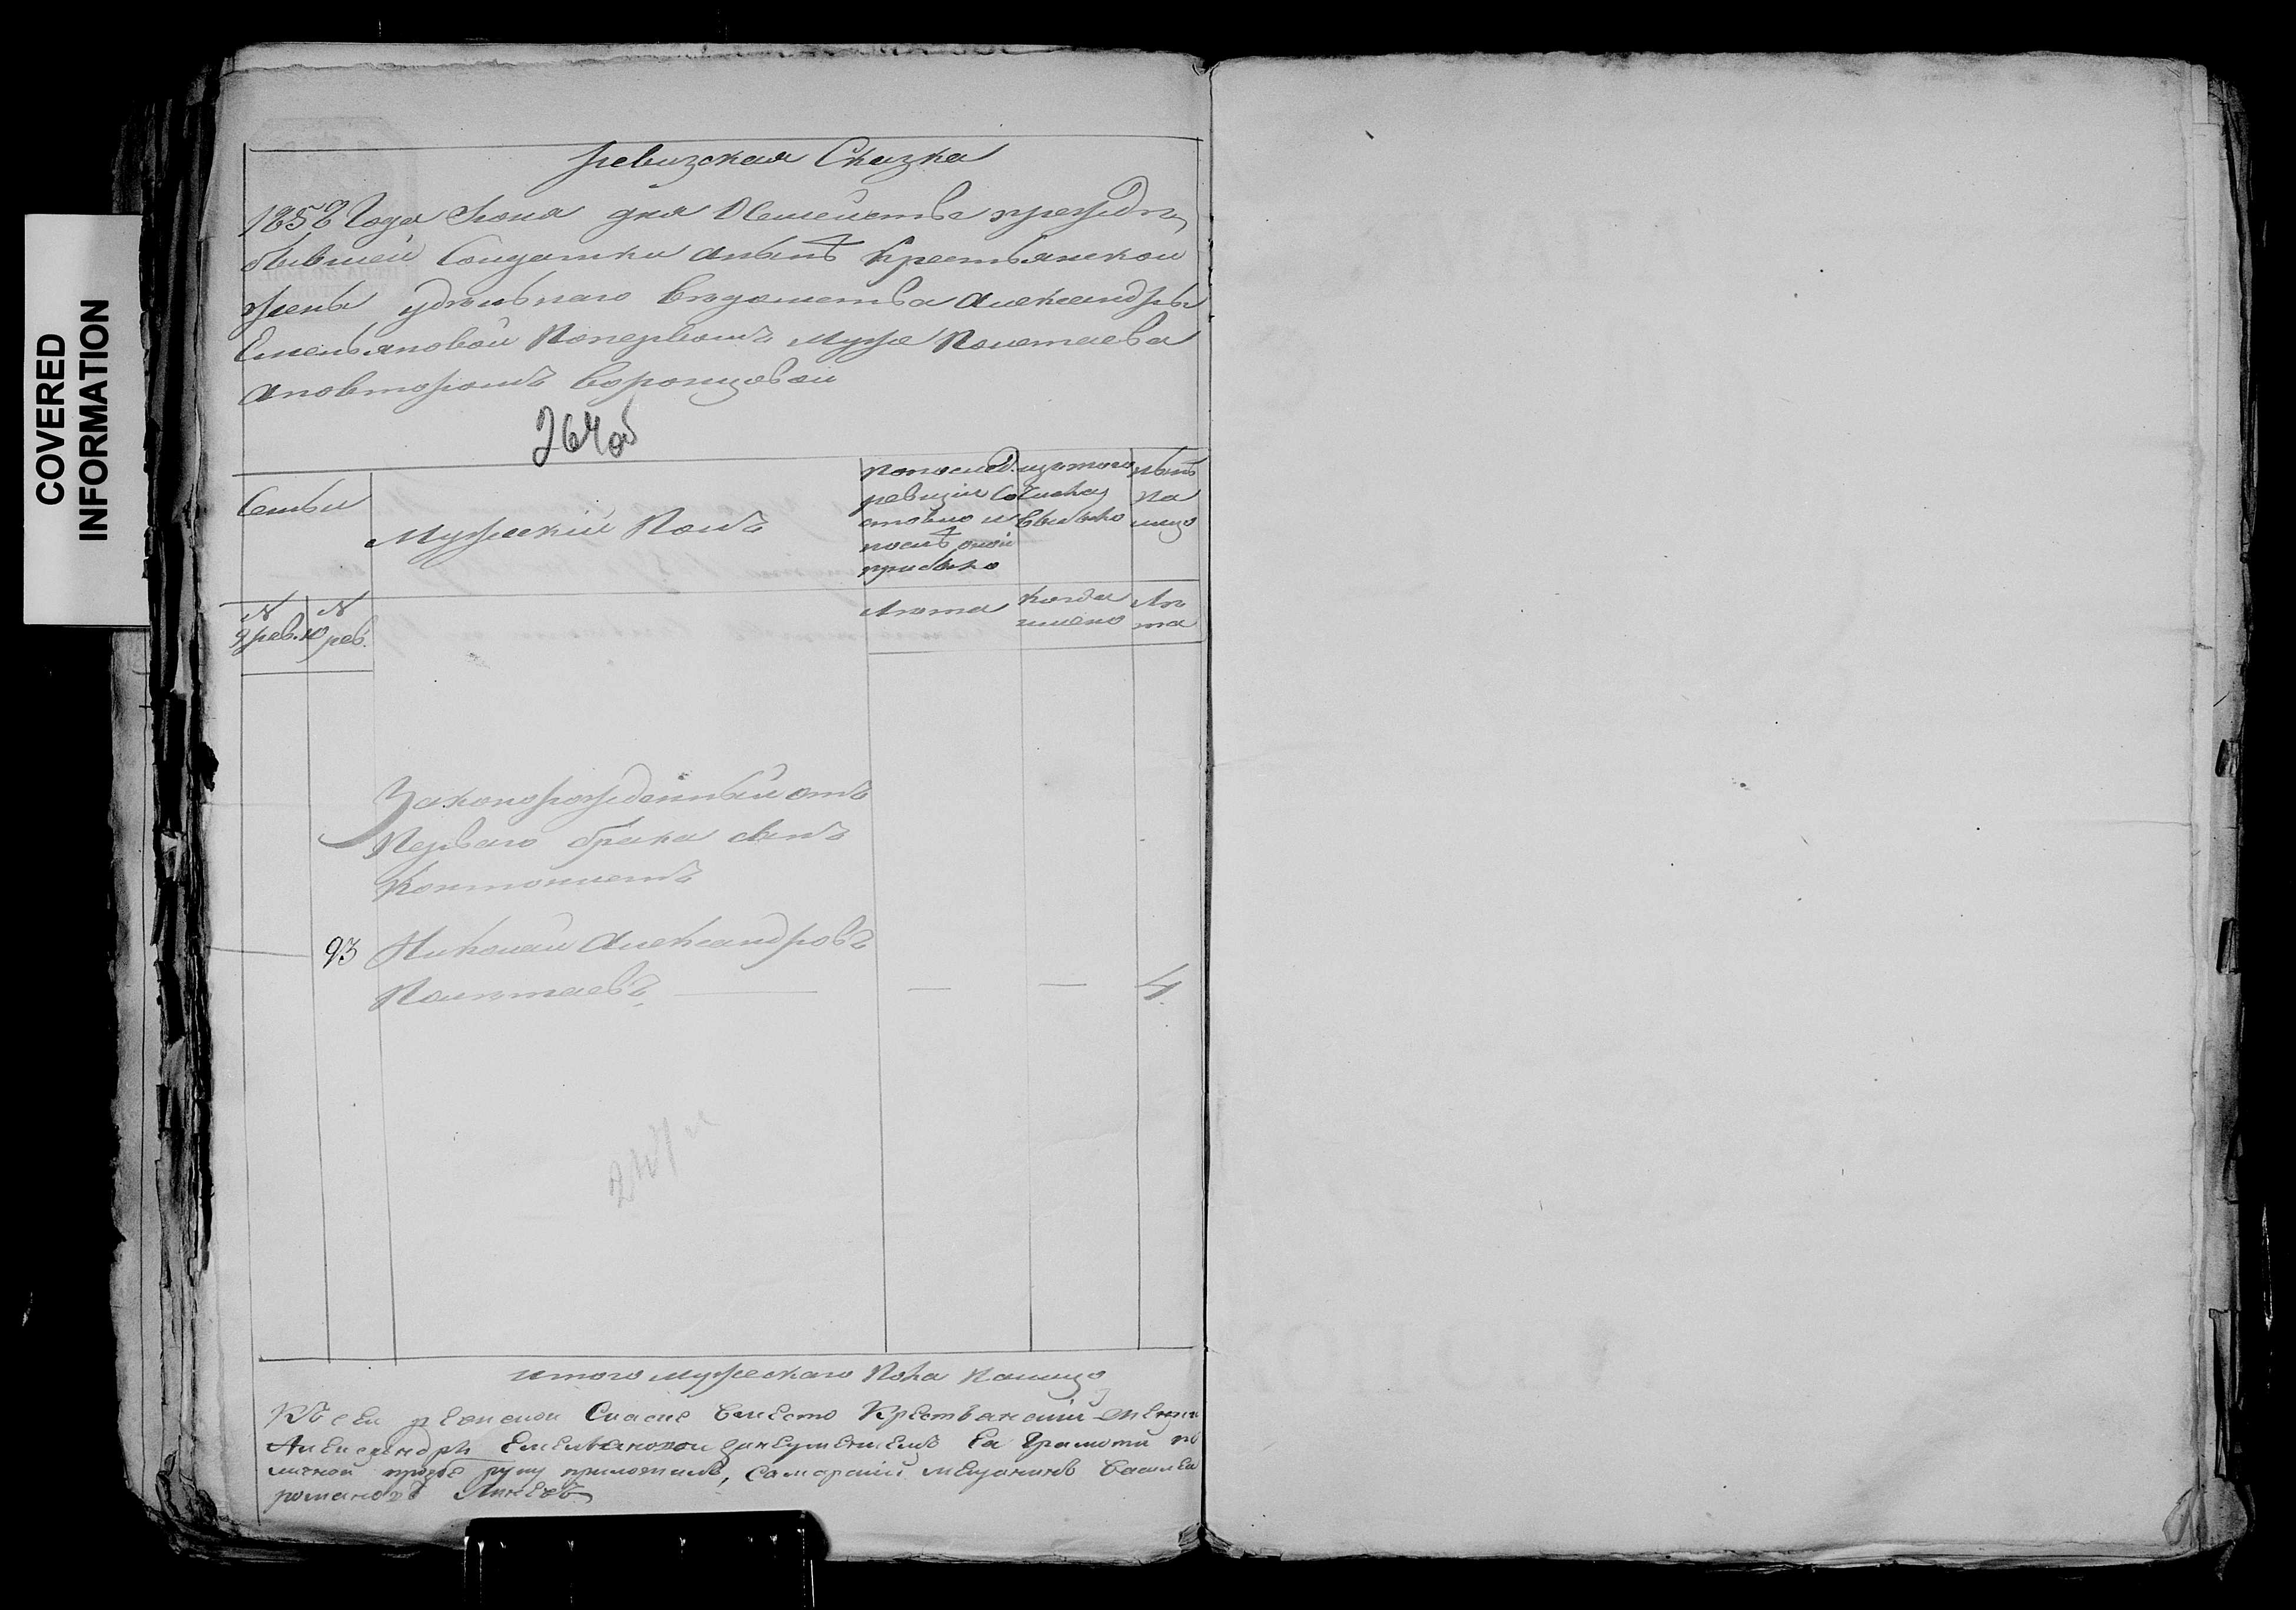 COVERED
INFORMATION
Ревизская Сказка
1858 Года Июня дня О семействе прежде
бывшей Солдатки а нынѣ Крестьянской
жены удѣльнаго ведомства Александры
Емельяновой По первомъ муже Полетаева
а по второмъ Воронцовой
264 об
Семьи
Мужеский Полъ
По послед. ревизии состояло и послѣ оной прибыло
изъ того числа выбыло
Ныне на лицо
N 9 рев.
N 10 рев.
Лета
Когда имено
Лета
Законорожденный отъ
Перваго брака сынъ
Кантонистъ
93 Николай Александровъ
Полетаевъ — — — 4.
Итого мужескаго Пола На лицо
Къ сей ревизской Сказке вместо Крестьянский женки
Александры Емельяновой за неумениемъ Ея Грамоти по
личной прозбе руку приложилъ, Самарский мещанинъ Василей
романовъ